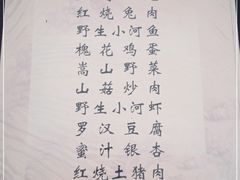 红烧兔肉
野生小河鱼
槐花鸡蛋
嵩山野菜
山菇炒肉
野生小河虾
罗汉豆腐
蜜汁银杏
红烧土猪肉